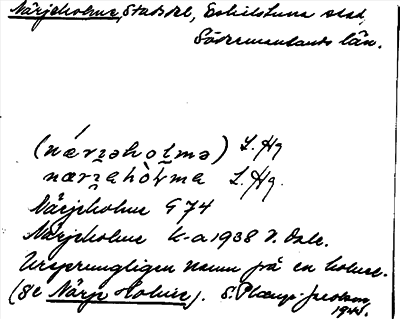 Närjeholme, Stadsdel, Eskilstuna stad,
Södermanlands län.
(nǽrjəhol̥mə) L. Hg
nærjahòlma L. Hg.
Närjeholme G 74
Närjeholme K-a 1938 V. Dale.
Ursprungligen namn på en holme.
(Se Närje Holme). S. 
1941.